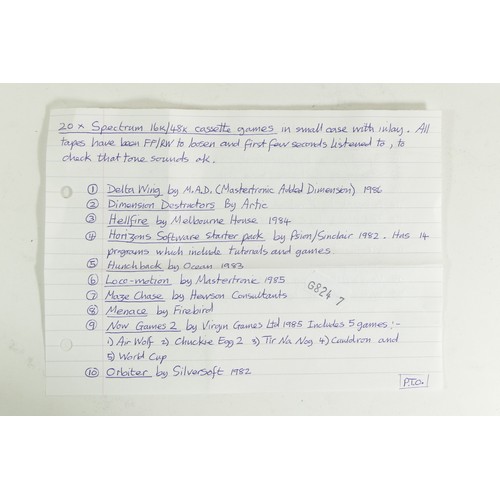 20 x Spectrum 16k/48k cassette games in small case with inlay. All
tapes have been FF/RW to loosen and first few seconds listened to, to
check that tone sounds ok.
① Delta Wing by M.A.D. (Mastertronic Added Dimension) 1986
② Dimension Destructors By Artic
③ Hellfire by Melbourne House 1984
④ Horizons Software starter pack by Psion/Sinclair 1982. Has 14
programs which include tutorials and games.
⑤ Hunchback by Ocean 1983
⑥ Loco-motion by Mastertronic 1985
⑦ Maze Chase by Hewson Consultants
G824 7
⑧ Menace by Firebird
⑨ Now Games 2 by Virgin Games Ltd 1985 Includes 5 games :-
1) Air Wolf 2) Chuckie Egg 2 3) Tir Na Nog 4) Cauldron and
5) World Cup
⑩ Orbiter by Silversoft 1982
P.T.O.